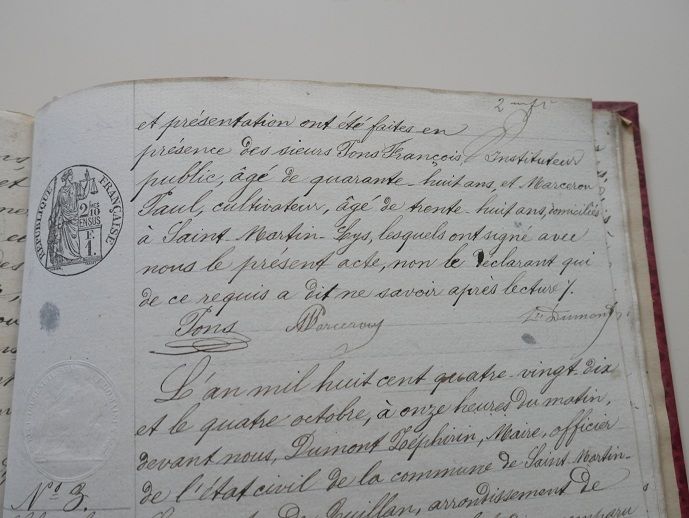 2
et présentation ont été faites en
présence des sieurs Tons François Instituteur
public, âgé de quarante-huit ans, et Marcerou
Paul, cultivateur, âgé de trente-huit ans, domiciliés
à Saint-Martin-Lys, lesquels ont signé avec
nous le présent acte, non le déclarant qui
de ce requis a dit ne savoir après lecture /.
Tons Marcerou Dumont
RÉPUBLIQUE FRANÇAISE
2/10
EN SUS
1F
L'an mil huit cent quatre-vingt-dix
et le quatre octobre, à onze heures du matin,
devant nous, Dumont Zéphirin, Maire, officier
de l'état civil de la commune de Saint-Martin-
Quillan, arrondissement de
N° 3.